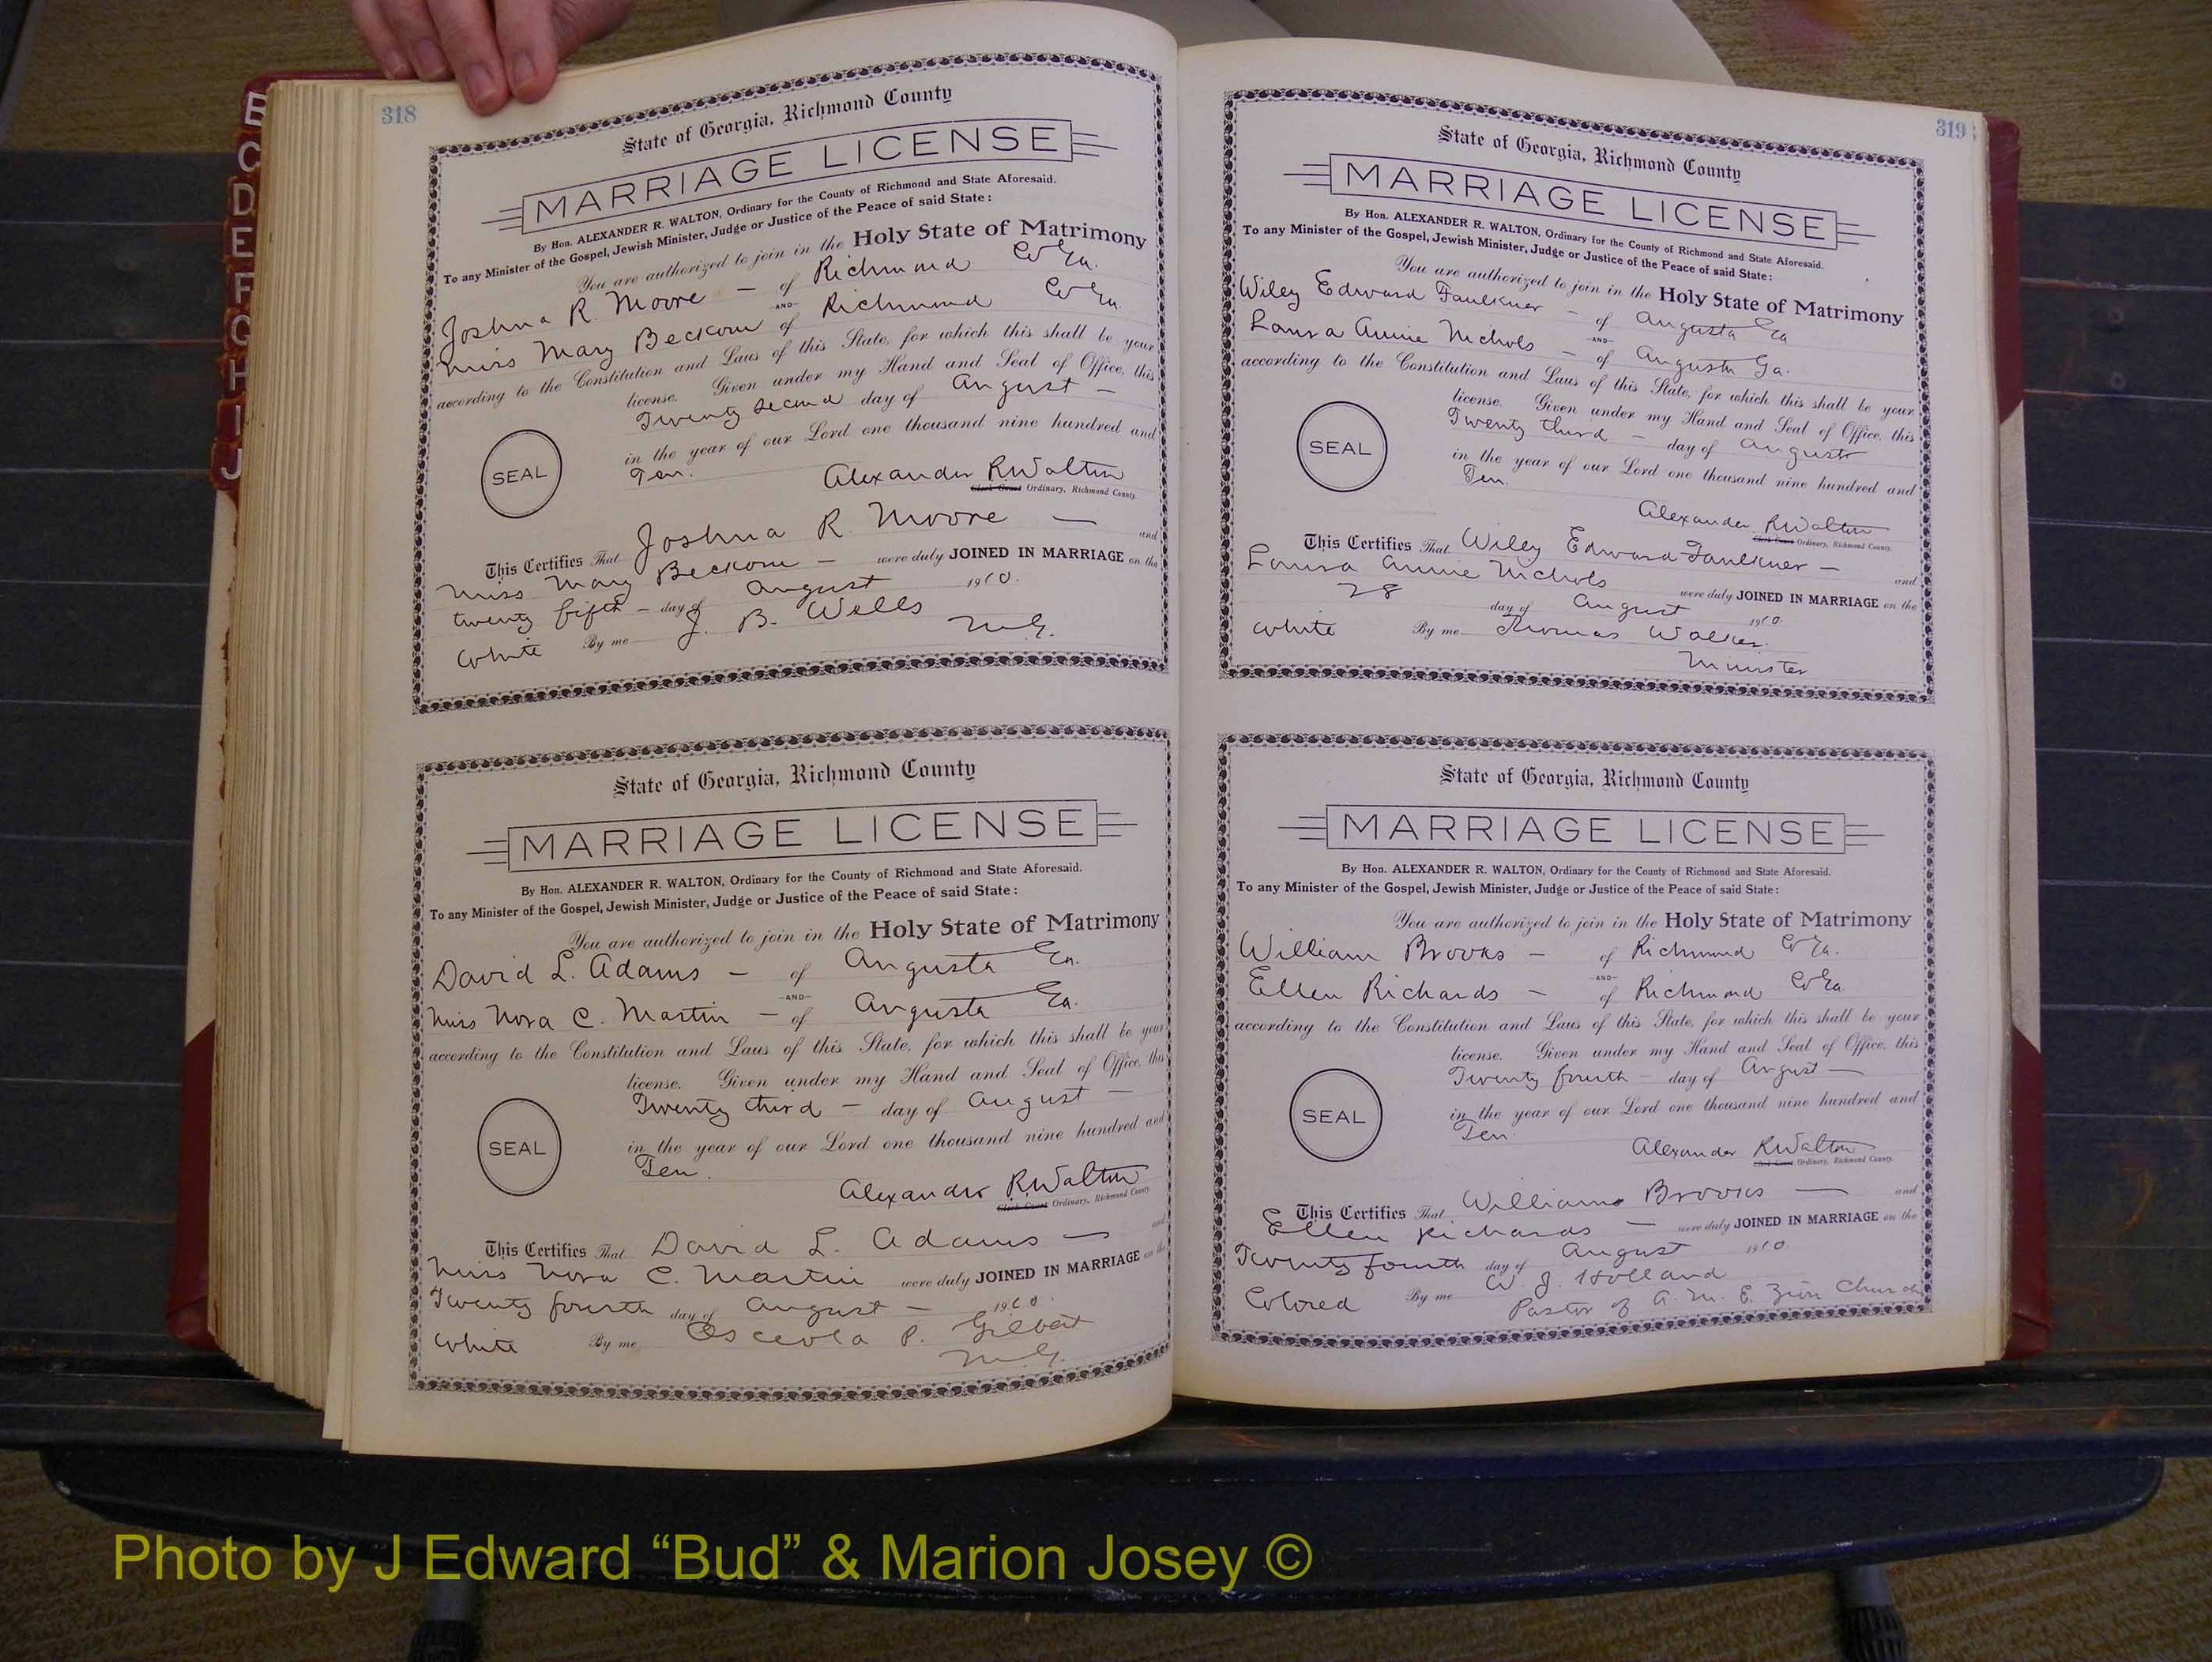 B
C
D
E
F
G
H
I
J
318
State of Georgia, Richmond County
MARRIAGE LICENSE
By Hon. ALEXANDER R. WALTON, Ordinary for the County of Richmond and State Aforesaid.
To any Minister of the Gospel, Jewish Minister, Judge or Justice of the Peace of said State:
You are authorized to join in the Holy State of Matrimony
Joshua R. Moore — of Richmond Co Ga.
-AND-
Miss Mary Beckom of Richmond Co Ga.
according to the Constitution and Laws of this State, for which this shall be your
license. Given under my Hand and Seal of Office, this
Twenty second day of August —
in the year of our Lord one thousand nine hundred and
Ten.
SEAL
Alexander R Walton
Clerk Court Ordinary, Richmond County.
This Certifies That Joshua R. Moore — and
Miss Mary Beckom — were duly JOINED IN MARRIAGE on the
twenty fifth — day of August 1910.
White By me J. B. Wells
M.G.
State of Georgia, Richmond County
MARRIAGE LICENSE
By Hon. ALEXANDER R. WALTON, Ordinary for the County of Richmond and State Aforesaid.
To any Minister of the Gospel, Jewish Minister, Judge or Justice of the Peace of said State:
You are authorized to join in the Holy State of Matrimony
David L. Adams — of Augusta Ga.
-AND-
Miss Nora C. Martin — of Augusta Ga.
according to the Constitution and Laws of this State, for which this shall be your
license. Given under my Hand and Seal of Office, this
Twenty third — day of August —
in the year of our Lord one thousand nine hundred and
Ten.
SEAL
Alexander R Walton
Clerk Court Ordinary, Richmond County.
This Certifies That David L. Adams — and
Miss Nora C. Martin were duly JOINED IN MARRIAGE on the
Twenty fourth day of August — 1910.
White By me Osceola P. Gilbert
M.G.
319
State of Georgia, Richmond County
MARRIAGE LICENSE
By Hon. ALEXANDER R. WALTON, Ordinary for the County of Richmond and State Aforesaid.
To any Minister of the Gospel, Jewish Minister, Judge or Justice of the Peace of said State:
You are authorized to join in the Holy State of Matrimony
Wiley Edward Faulkner — of Augusta Ga
-AND-
Laura Annie Nichols — of Augusta Ga.
according to the Constitution and Laws of this State, for which this shall be your
license. Given under my Hand and Seal of Office, this
Twenty third — day of August
in the year of our Lord one thousand nine hundred and
Ten.
SEAL
Alexander R Walton
Clerk Court Ordinary, Richmond County.
This Certifies That Wiley Edward Faulkner — and
Laura Annie Nichols were duly JOINED IN MARRIAGE on the
28 day of August 1910.
White By me Thomas Walker.
Minister
State of Georgia, Richmond County
MARRIAGE LICENSE
By Hon. ALEXANDER R. WALTON, Ordinary for the County of Richmond and State Aforesaid.
To any Minister of the Gospel, Jewish Minister, Judge or Justice of the Peace of said State:
You are authorized to join in the Holy State of Matrimony
William Brooks — of Richmond Co Ga.
-AND-
Ellen Richards — of Richmond Co Ga
according to the Constitution and Laws of this State, for which this shall be your
license. Given under my Hand and Seal of Office, this
Twenty fourth — day of August —
in the year of our Lord one thousand nine hundred and
Ten.
SEAL
Alexander R Walton
Clerk Court Ordinary, Richmond County.
This Certifies That Williams Brooks — and
Ellen Richards — were duly JOINED IN MARRIAGE on the
Twenty fourth day of August 1910.
Colored By me W. J. Holland
Pastor of A. M. E. Zion Church
Photo by J Edward “Bud” & Marion Josey ©